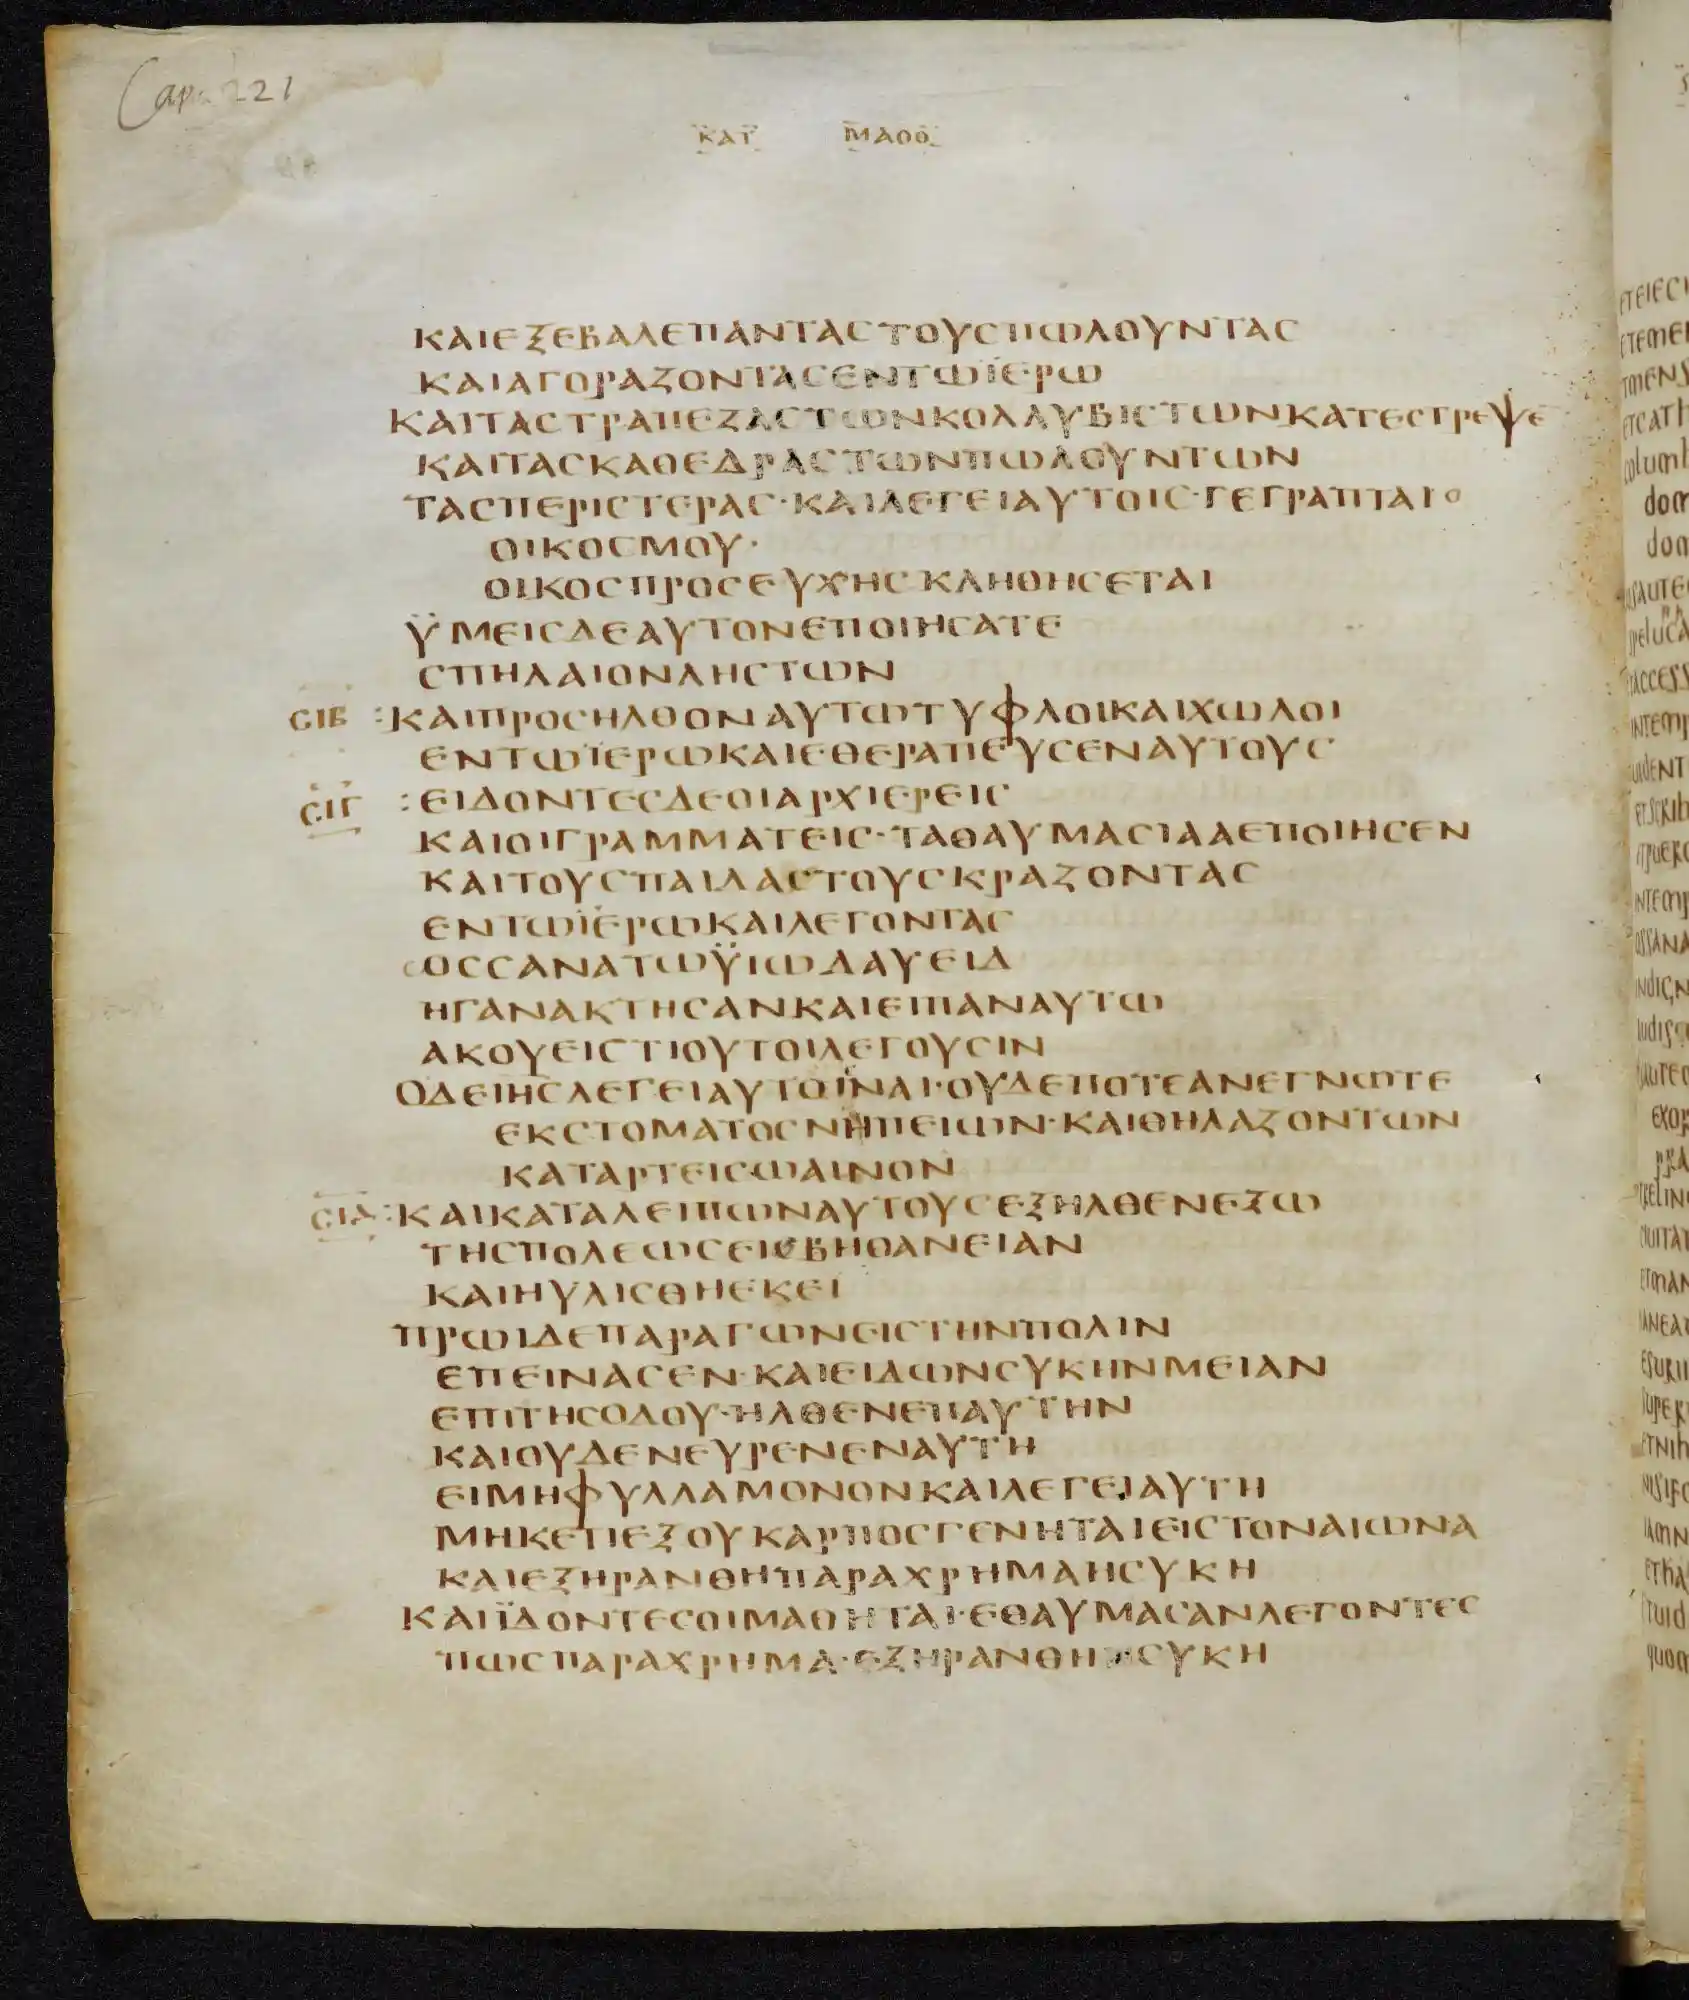 Cap 221
ΚΑΤ ΜΑΘΘ
ΚΑΙΕΞΕΒΑΛΕΠΑΝΤΑϹΤΟΥϹΠΩΛΟΥΝΤΑϹ
ΚΑΙΑΓΟΡΑΖΟΝΤΑϹΕΝΤΩΪΕΡΩ
ΚΑΙΤΑϹΤΡΑΠΕΖΑϹΤΩΝΚΟΛΛΥΒΙϹΤΩΝΚΑΤΕϹΤΡΕΨΕ
ΚΑΙΤΑϹΚΑΘΕΔΡΑϹΤΩΝΠΩΛΟΥΝΤΩΝ
ΤΑϹΠΕΡΙϹΤΕΡΑϹ·ΚΑΙΛΕΓΕΙΑΥΤΟΙϹ·ΓΕΓΡΑΠΤΑΙΟ
ΟΙΚΟϹΜΟΥ·
ΟΙΚΟϹΠΡΟϹΕΥΧΗϹΚΛΗΘΗϹΕΤΑΙ
ΫΜΕΙϹΔΕΑΥΤΟΝΕΠΟΙΗϹΑΤΕ
ϹΠΗΛΑΙΟΝΛΗϹΤΩΝ
ϹΙΒ :ΚΑΙΠΡΟϹΗΛΘΟΝΑΥΤΩΤΥΦΛΟΙΚΑΙΧΩΛΟΙ
ΕΝΤΩΪΕΡΩΚΑΙΕΘΕΡΑΠΕΥϹΕΝΑΥΤΟΥϹ
ϹΙΓ :ΕΙΔΟΝΤΕϹΔΕΟΙΑΡΧΙΕΡΕΙϹ
ΚΑΙΟΙΓΡΑΜΜΑΤΕΙϹ·ΤΑΘΑΥΜΑϹΙΑΑΕΠΟΙΗϹΕΝ
ΚΑΙΤΟΥϹΠΑΙΔΑϹΤΟΥϹΚΡΑΖΟΝΤΑϹ
ΕΝΤΩΪΕΡΩΚΑΙΛΕΓΟΝΤΑϹ
ΩϹϹΑΝΑΤΩΫΙΩΔΑΥΕΙΔ
ΗΓΑΝΑΚΤΗϹΑΝΚΑΙΕΙΠΑΝΑΥΤΩ
ΑΚΟΥΕΙϹΤΙΟΥΤΟΙΛΕΓΟΥϹΙΝ
ΟΔΕΙΗϹΛΕΓΕΙΑΥΤΟΙΝΑΙ·ΟΥΔΕΠΟΤΕΑΝΕΓΝΩΤΕ
ΕΚϹΤΟΜΑΤΟϹΝΗΠΕΙΩΝ·ΚΑΙΘΗΛΑΖΟΝΤΩΝ
ΚΑΤΑΡΤΕΙϹΩΑΙΝΟΝ
ϹΙΔ :ΚΑΙΚΑΤΑΛΕΙΠΩΝΑΥΤΟΥϹΕΞΗΛΘΕΝΕΞΩ
ΤΗϹΠΟΛΕΩϹΕΙϹΒΗΘΑΝΕΙΑΝ
ΚΑΙΗΥΛΙϹΘΗΕΚΕΙ
ΠΡΩΙΔΕΠΑΡΑΓΩΝΕΙϹΤΗΝΠΟΛΙΝ
ΕΠΕΙΝΑϹΕΝ·ΚΑΙΕΙΔΩΝϹΥΚΗΝΜΕΙΑΝ
ΕΠΙΤΗϹΟΔΟΥ·ΗΛΘΕΝΕΠΑΥΤΗΝ
ΚΑΙΟΥΔΕΝΕΥΡΕΝΕΝΑΥΤΗ
ΕΙΜΗΦΥΛΛΑΜΟΝΟΝΚΑΙΛΕΓΕΙΑΥΤΗ
ΜΗΚΕΤΙΕΞΟΥΚΑΡΠΟϹΓΕΝΗΤΑΙΕΙϹΤΟΝΑΙΩΝΑ
ΚΑΙΕΞΗΡΑΝΘΗΠΑΡΑΧΡΗΜΑΗϹΥΚΗ
ΚΑΙΪΔΟΝΤΕϹΟΙΜΑΘΗΤΑΙ·ΕΘΑΥΜΑϹΑΝΛΕΓΟΝΤΕϹ
ΠΩϹΠΑΡΑΧΡΗΜΑ·ΕΞΗΡΑΝΘΗΗϹΥΚΗ